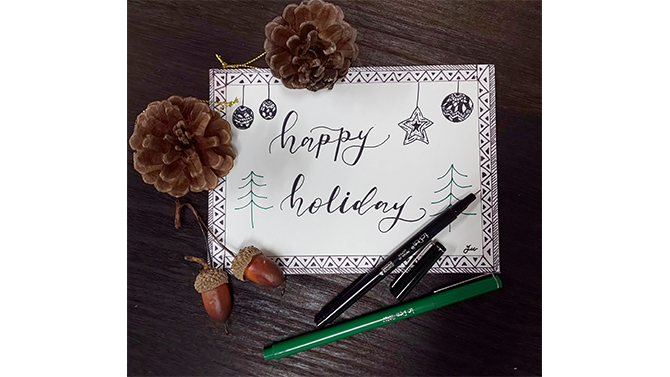 happy
holiday